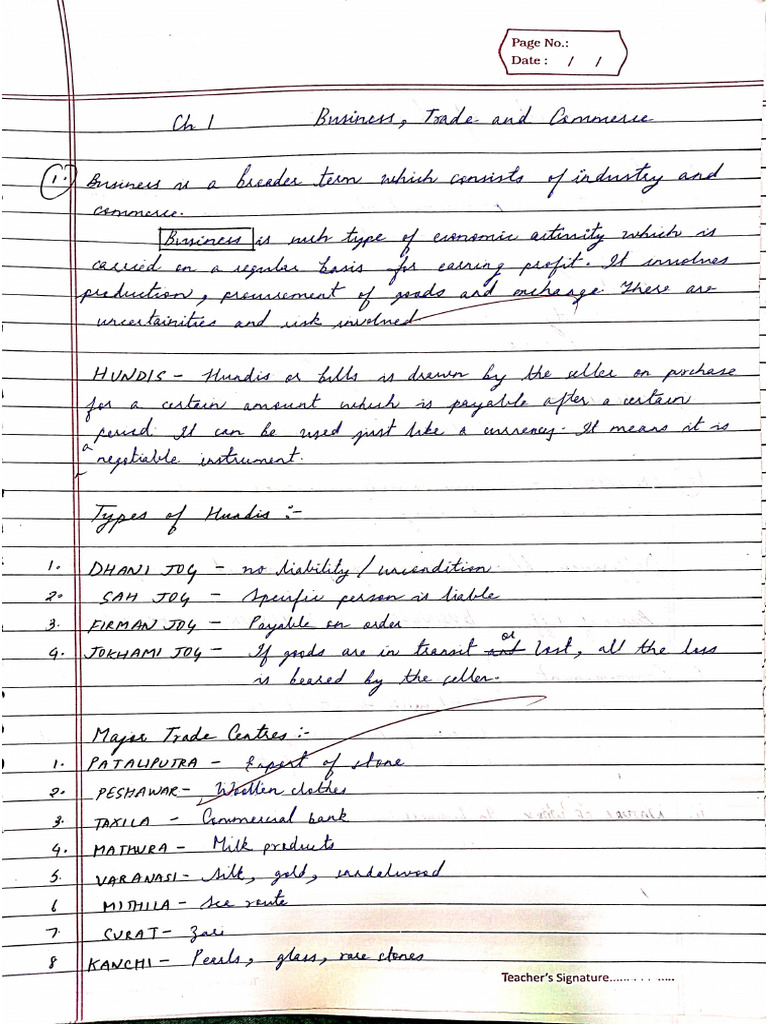 Page No.:
Date : / /
Ch 1 Business, Trade and Commerce
1. Business is a broader term which consists of industry and
commerce.
Business is such type of economic activity which is
carried on a regular basis for earning profit. It involves
production, procurement of goods and exchange. There are
uncertainities and risk involved
HUNDIS - Hundis or bills is drawn by the seller on purchase
for a certain amount which is payable after a certain
period. It can be used just like a currency. It means it is
a negotiable instrument.
Types of Hundis :-
1. DHANI JOG - no liability / uncondition
2. SAH JOG - Specific person is liable
3. FIRMAN JOG - Payable on order
4. JOKHAMI JOG - If goods are in transit or lost, all the loss
is beared by the seller.
Major Trade Centres :-
1. PATALIPUTRA - Export of stone
2. PESHAWAR - Woollen clothes
3. TAXILA - Commercial bank
4. MATHURA - Milk products
5. VARANASI - silk, gold, sandalwood
6 MITHILA - sea route
7. SURAT - Zari
8 KANCHI - Pearls, glass, rare stones
Teacher's Signature..............